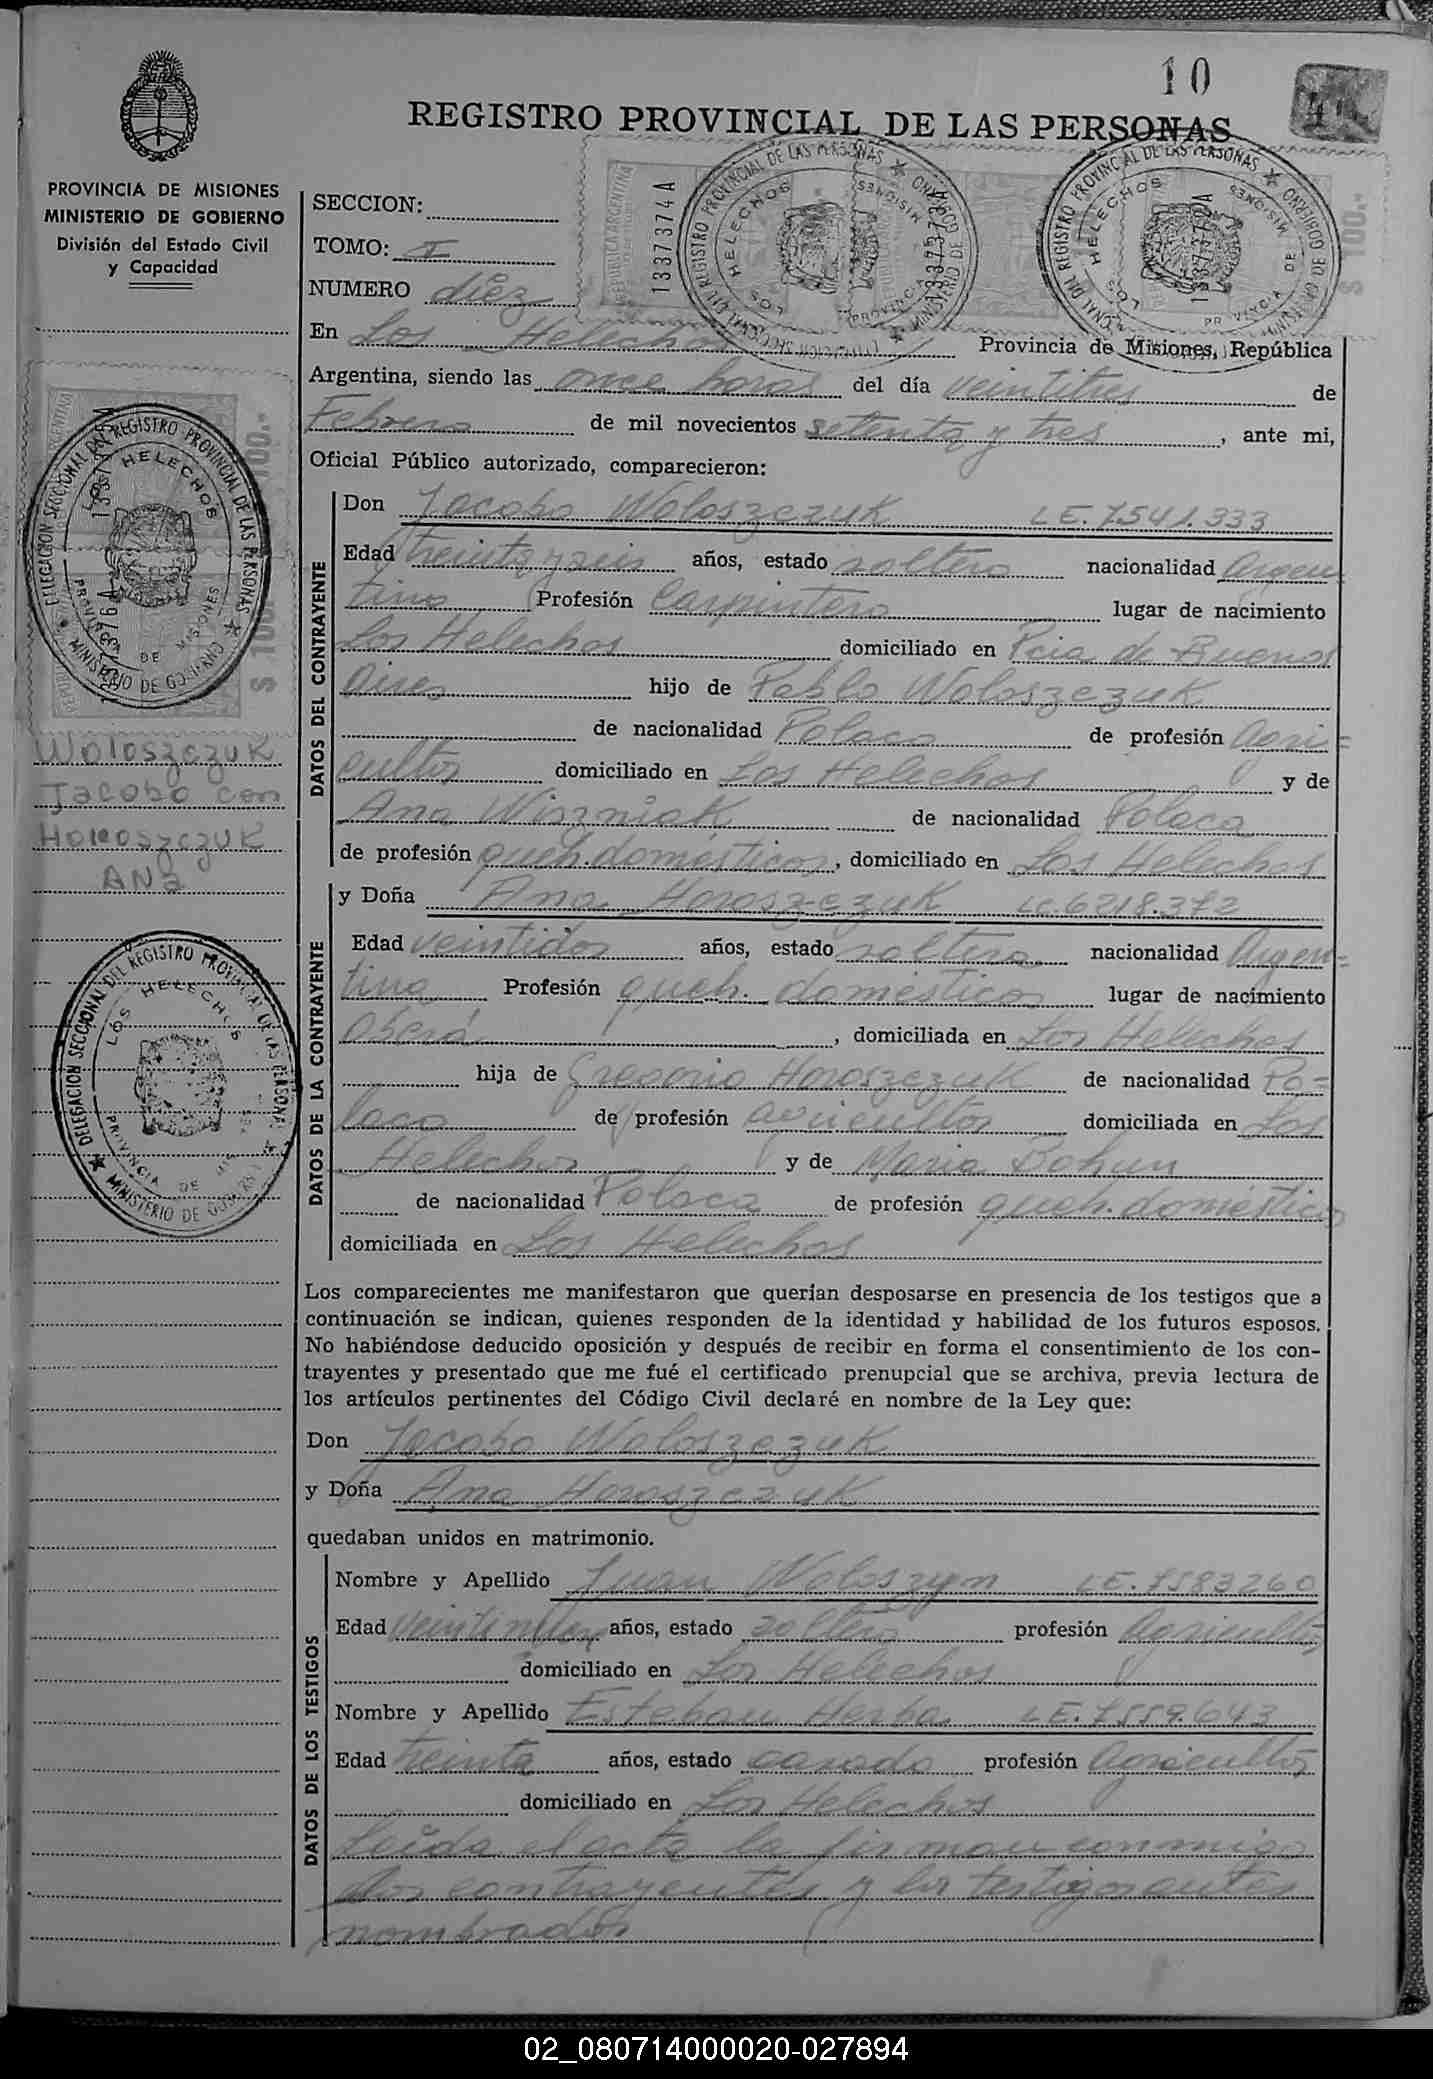 10
REGISTRO PROVINCIAL DE LAS PERSONAS
PROVINCIA DE MISIONES
MINISTERIO DE GOBIERNO
División del Estado Civil
y Capacidad
SECCION:
TOMO: I
NUMERO diez
En Los Helechos Provincia de Misiones, República
Argentina, siendo las once horas del día veintitres de
Febrero de mil novecientos setenta y tres, ante mi,
Oficial Público autorizado, comparecieron:
DATOS DEL CONTRAYENTE
Don Jacobo Woloszczuk LE. 7.541.333
Edad treinta y seis años, estado soltero nacionalidad Argen
tino Profesión Carpintero lugar de nacimiento
Los Helechos domiciliado en Pcia de Buenos
Aires hijo de Pablo Woloszczuk
de nacionalidad Polaca de profesión Agri=
cultor domiciliado en Los Helechos y de
Ana Wiszniak de nacionalidad Polaca
de profesión queh. domésticos, domiciliado en Los Helechos
DATOS DE LA CONTRAYENTE
y Doña Ana Horoszczuk LC. 6218.372
Edad veintidos años, estado soltera nacionalidad Argen=
tina Profesión queh. domésticos lugar de nacimiento
Oberá, domiciliada en Los Helechos
hija de Gregorio Horoszczuk de nacionalidad Po=
laca de profesión agricultor domiciliada en Los
Helechos y de Maria Bohun
de nacionalidad Polaca de profesión queh. doméstico
domiciliada en Los Helechos
Los comparecientes me manifestaron que querían desposarse en presencia de los testigos que a
continuación se indican, quienes responden de la identidad y habilidad de los futuros esposos.
No habiéndose deducido oposición y después de recibir en forma el consentimiento de los con-
trayentes y presentado que me fué el certificado prenupcial que se archiva, previa lectura de
los artículos pertinentes del Código Civil declaré en nombre de la Ley que:
Don Jacobo Woloszczuk
y Doña Ana Horoszczuk
quedaban unidos en matrimonio.
DATOS DE LOS TESTIGOS
Nombre y Apellido Juan Woloszyn LE. 7583260
Edad veintinueve años, estado soltero profesión Agricultor
domiciliado en Los Helechos
Nombre y Apellido Esteban Herba LE. 7.559.643
Edad treinta años, estado casado profesión Agricultor
domiciliado en Los Helechos
Leída el acta la firman conmigo
los contrayentes y los testigos antes
nombrados
Woloszczuk
Jacobo con
Horoszczuk
Ana
DELEGACION SECCIONAL DEL REGISTRO PROVINCIAL DE LAS PERSONAS
MINISTERIO DE GOBIERNO
LOS HELECHOS
PROVINCIA DE MISIONES
REPUBLICA ARGENTINA
1337374A
$ 100.-
02_080714000020-027894